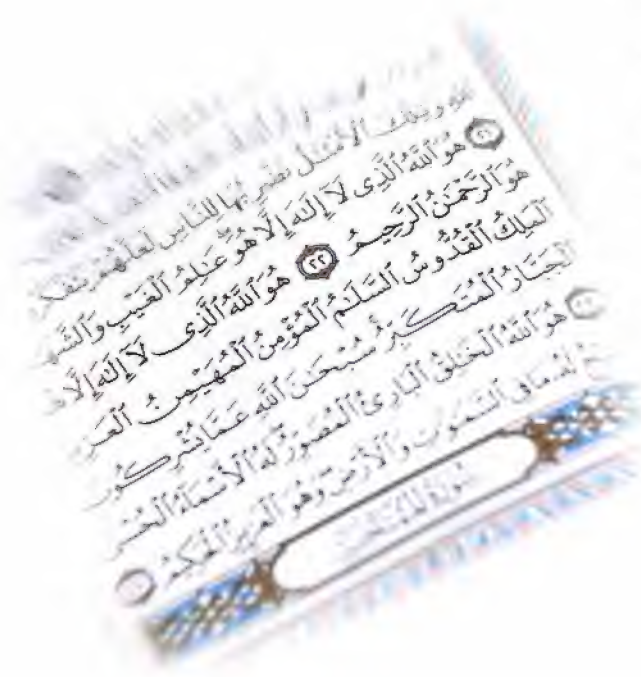 وتلك الأمثال نضربها للناس لعلهم يتفكرو
٢١ هُوَ ٱللَّهُ ٱلَّذِى لَآ إِلَٰهَ إِلَّا هُوَ عَٰلِمُ ٱلْغَيْبِ وَٱلشَّهَ
هُوَ ٱلرَّحْمَٰنُ ٱلرَّحِيمُ ٢٢ هُوَ ٱللَّهُ ٱلَّذِى لَآ إِلَٰهَ إِلَّا هُ
ٱلْمَلِكُ ٱلْقُدُّوسُ ٱلسَّلَٰمُ ٱلْمُؤْمِنُ ٱلْمُهَيْمِنُ ٱلْعَزِ
ٱلْجَبَّارُ ٱلْمُتَكَبِّرُ سُبْحَٰنَ ٱللَّهِ عَمَّا يُشْرِكُو
هُوَ ٱللَّهُ ٱلْخَٰلِقُ ٱلْبَارِئُ ٱلْمُصَوِّرُ لَهُ ٱلْأَسْمَآءُ ٱلْحُسْ
لَهُۥ مَا فِى ٱلسَّمَٰوَٰتِ وَٱلْأَرْضِ وَهُوَ ٱلْعَزِيزُ ٱلْحَكِيمُ
سُورَةُ ٱلْمُمْتَحَنَةِ